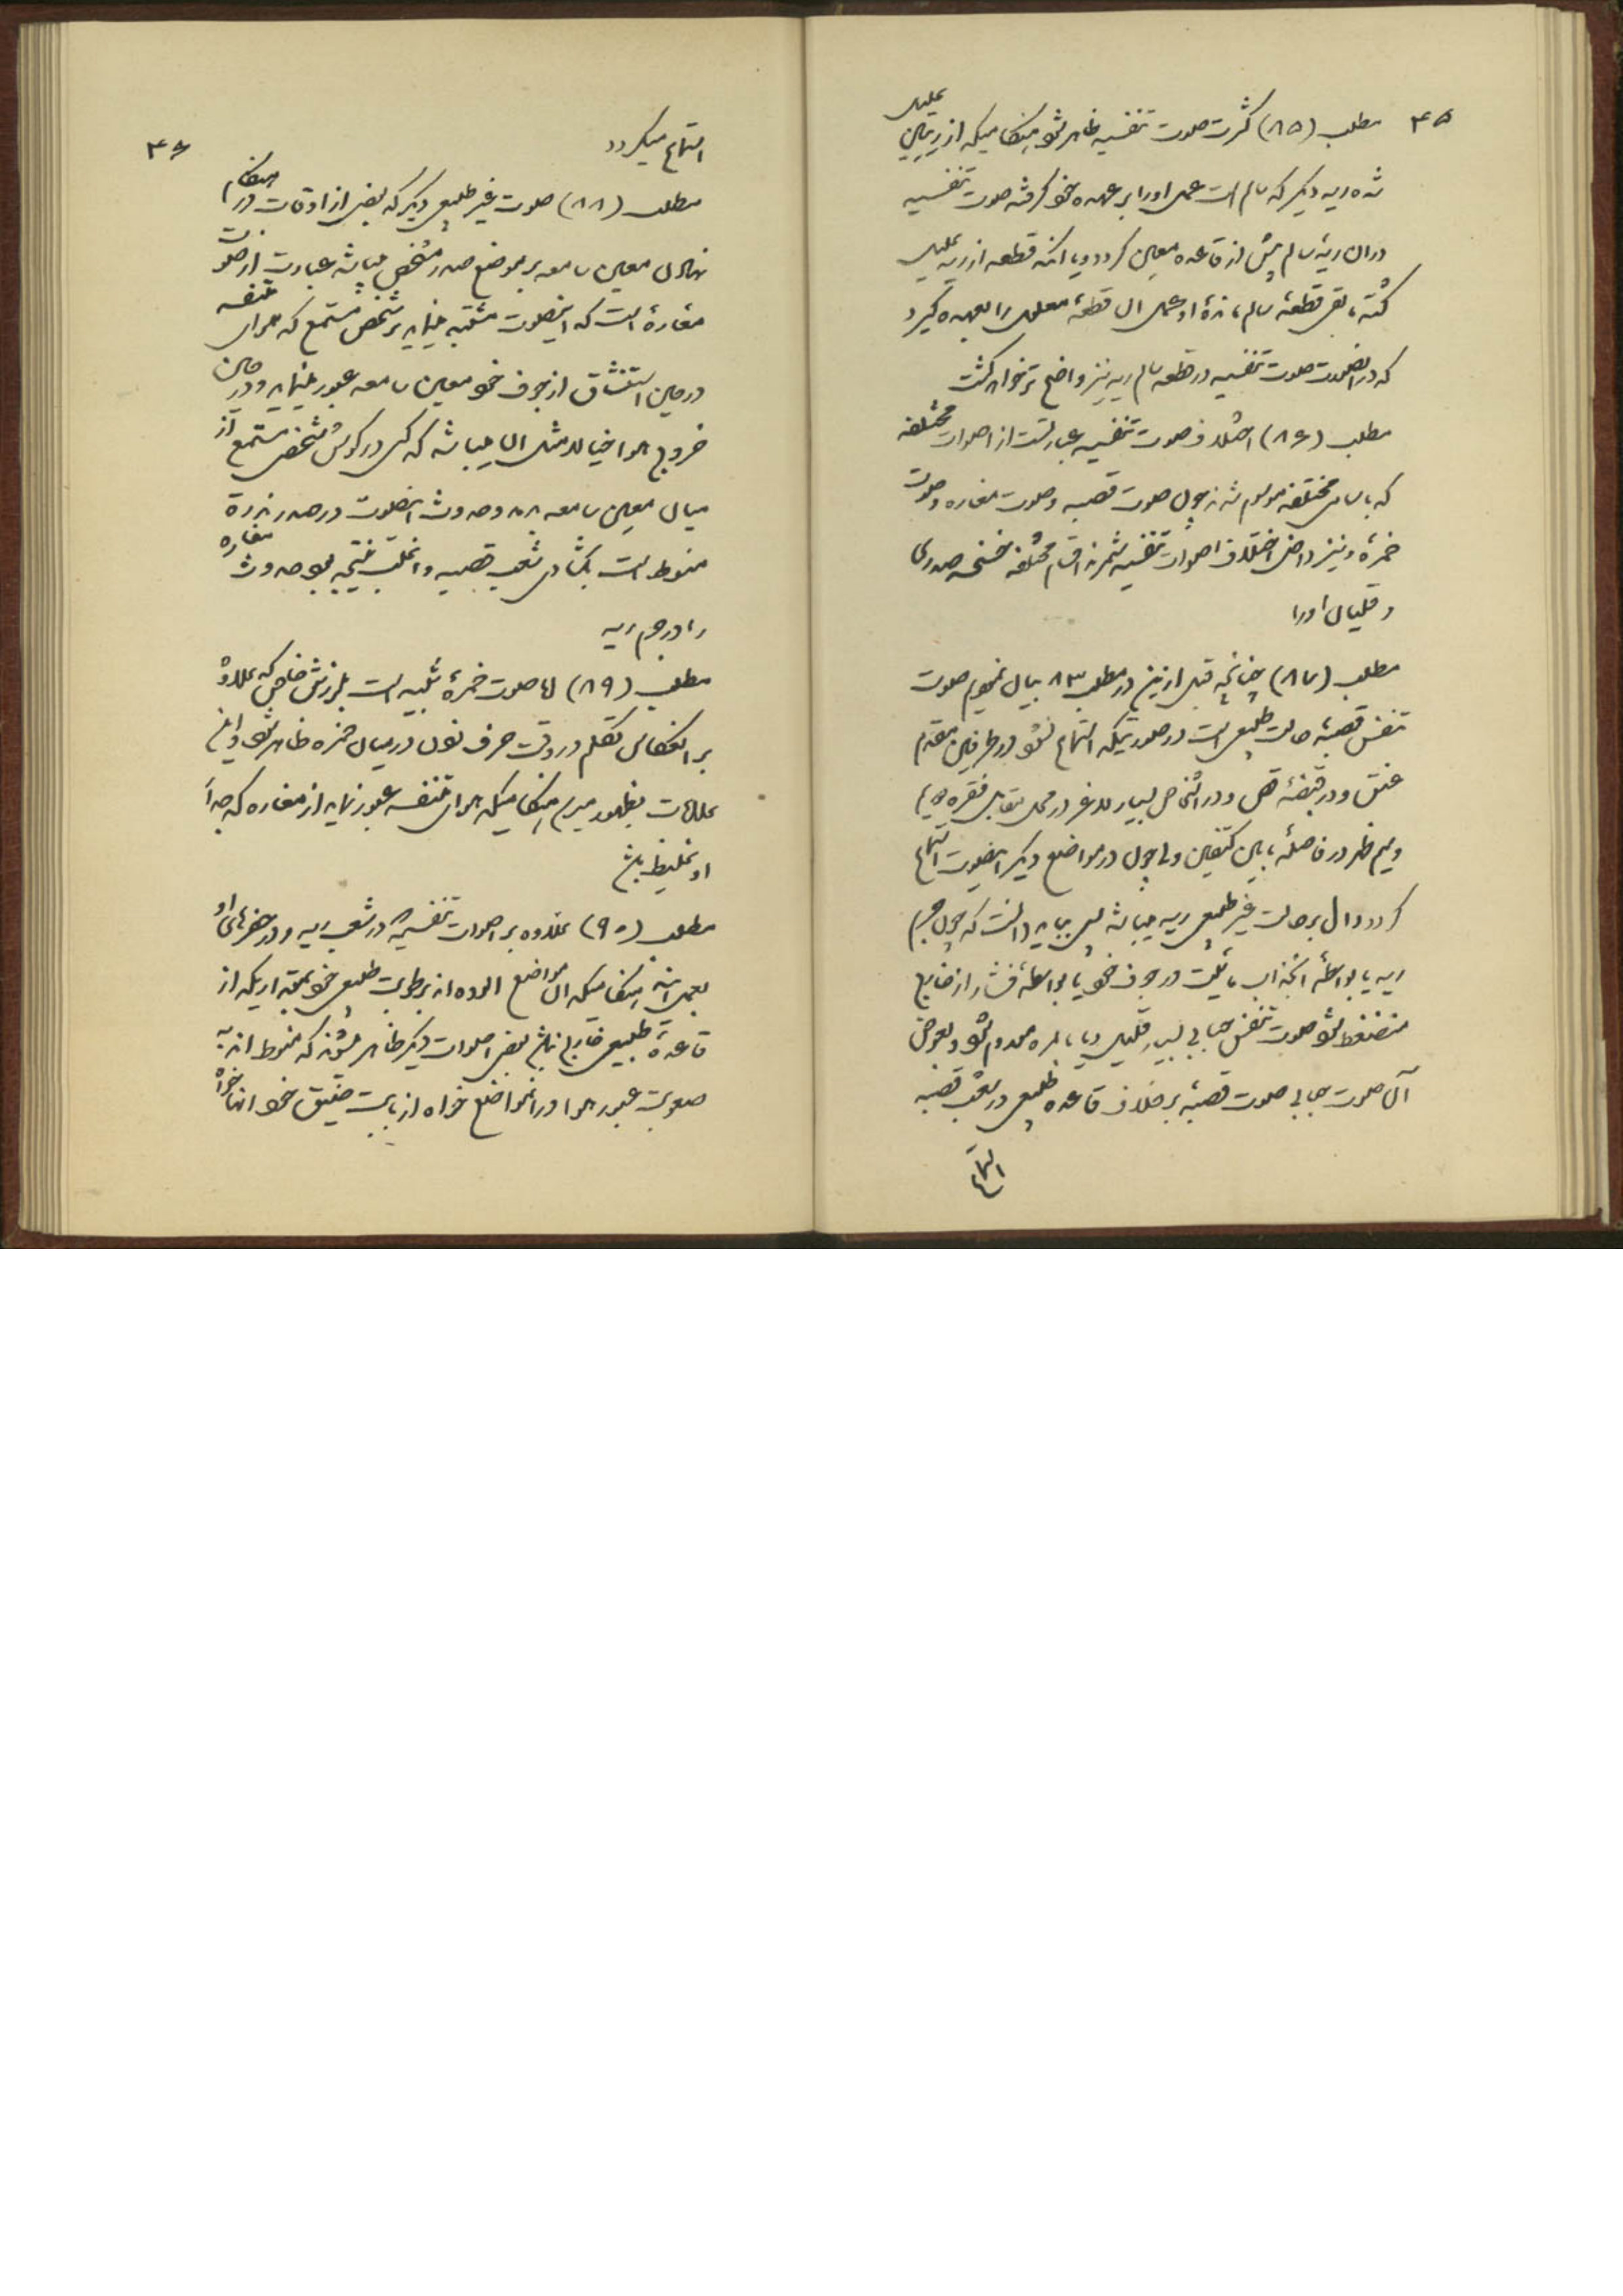 ۴۵
مطلب (۸۵) کثرت صوت تنفسیه ظاهر شود هنگامیکه از ریتین علیل
شده ریه دیگر که سالم است عمل او را بر عهده خود گرفته صوت تنفسیه
در آن ریهٔ سالم بیش از قاعده معین گردد و یا آنکه قطعه از ریه علیل
گشته باقی قطعهٔ سالم مانده او عمل آن قطعهٔ معلول را بعهده گیرد
که در اینصورت صوت تنفسیه در قطعه سالم ریه نیز واضح‌تر خواهد گشت
مطلب (۸۶) اختلاف صوت تنفسیه عبارتست از اصوات مختلفه
که باسامی مختلفه موسوم شدند چون صوت قصبه و صوت مغاره و صوت
خمرهٔ و نیز داخل اختلاف اصوات تنفسیه شمرند اقسام مختلفه خسخسه صدری
و قلیان او را
مطلب (۸۷) چنانچه قبل ازین در مطلب ۸۳ بیان نمودیم صوت
تنفس قصبهٔ حالت طبیعی است در صورتیکه استماع شود در طرفین مقدم
عنق و در قبضهٔ قص و در اشخاص بسیار لاغر در محل تقابل فقره
و نیم ظهر در فاصلهٔ مابین کتفین ولی چون در مواضع دیگر اینصوت استماع
گردد دال بر حالت غیر طبیعی ریه میباشد پس بباید دانست که چون جرم
ریه یا بواسطهٔ انجذاب مائیت در جوف خود یا بواسطهٔ فشار از خارج
منضغط شود صوت تنفس حبابی بسیار قلیل و یا بالمره معدوم شود و بعوض
آن صوت حبابی صوت قصبهٔ بر خلاف قاعده طبیعی در شعب قصبه
استماع
۴۶
استماع میگردد
مطلب (۸۸) صوت غیر طبیعی دیگر که بعضی از اوقات در هنگام
نهادن معین سامعه بر موضع صدر مشخص میباشد عبارت از صوت
مغارهٔ است که اینصوت مشتبه مینماید بر شخص مستمع که هوای متنفسه
در حین استنشاق از جوف خود معین سامعه عبور مینماید و در حین
خروج هوا خیالا مثل آن میباشد که کسی در گوش شخص مستمع از
میان معین سامعه بدمد و حدوث اینصوت در صدر بندرة
منوط است بگشادی شعب قصبیه و اغلب نتیجه بود حدوث مغاره
را در جرم ریه
مطلب (۸۹) اما صوت خمرهٔ شبیه است بلرزش خاصی که علاوه
بر انعکاس تکلم در وقت حرف نون در میان خمره ظاهر شود و این
علامت بظهور میرسد هنگامیکه هوای متنفسه عبور نماید از مغاره که جدار
او غلیظ باشد
مطلب (۹۰) علاوه بر اصوات تنفسیه که در شعب ریه و در حفرهای او
بعمل آید هنگامیکه آن مواضع آلوده اند برطوبت طبیعی خود همینکه اندکی از
قاعدهٔ طبیعی خارج باشد بعضی اصوات دیگر ظاهر شوند که منوط اند به
صعوبت عبور هوا در آنمواضع خواه از بابت ضیق خود آنها خواه